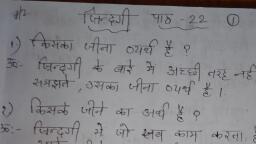 ज़िन्दगी पाठ-22 ①
१) किसका जीना व्यर्थ है ?
उ०- ज़िन्दगी के बारे में अच्छी तरह नहीं
समझते, उसका जीना व्यर्थ है ।
२) किसके जीने का अर्थ है ?
उ०:- ज़िन्दगी में जो सब काम करता है